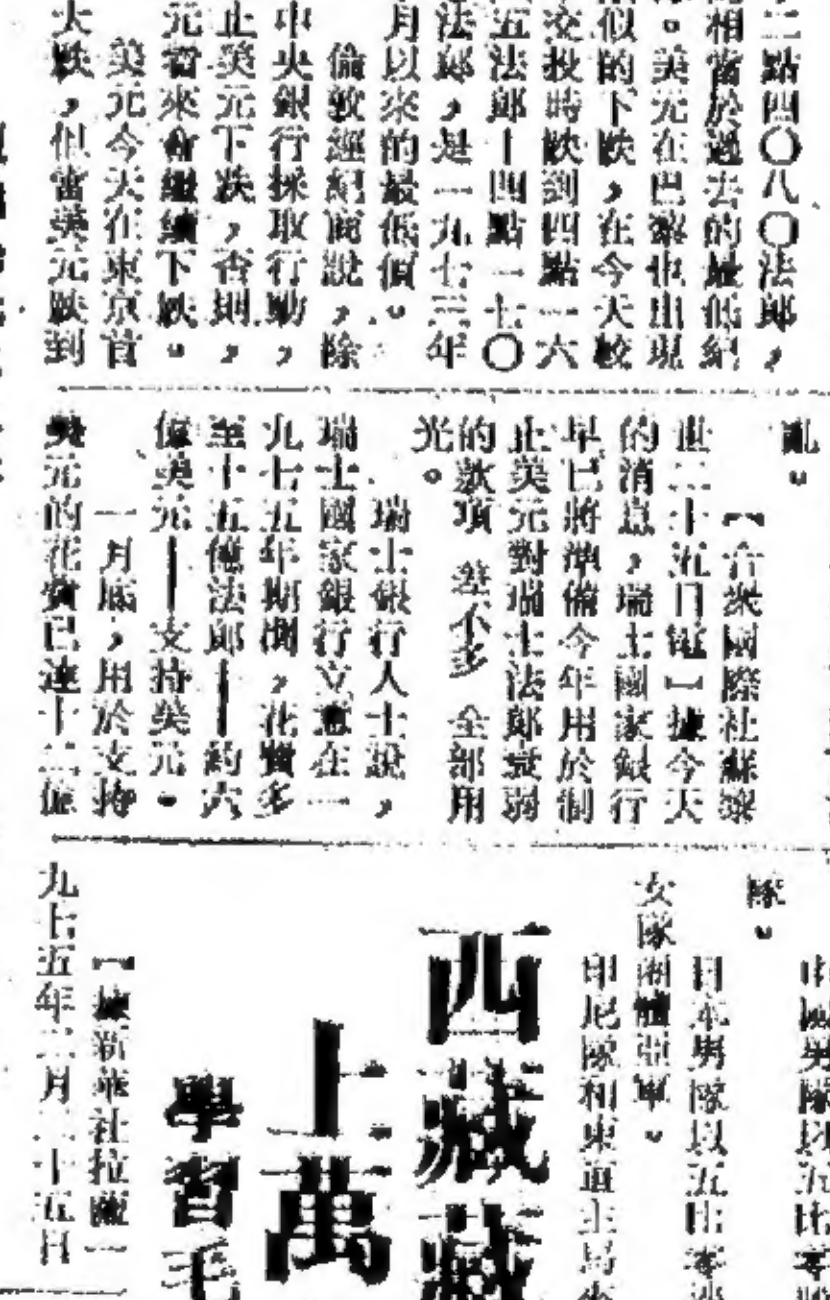 二點四〇八〇法郎，
相當於過去的最低紀
。美元在巴黎也出現
似的下跌，在今天較
交投時跌到四點一六
五法郎十四點一七〇
法郎，是一九七三年
月以來的最低價。
倫敦經紀商說，除
中央銀行採取行動，
止美元下跌，否則，
元當來會繼續下跌。
美元今天在東京首
大跌，但當美元跌到
亂。
【合衆國際社蘇黎
世二十五日電】據今天
的消息，瑞士國家銀行
早已將準備今年用於制
止美元對瑞士法郎衰弱
的款項 差不多 全部用
光。
瑞士銀行人士說，
瑞士國家銀行立意在一
九七五年期間，花費多
至十五億法郎——約六
億美元——支持美元。
一月底，用於支持
美元的花費已達十二億
中國男隊以五比零
隊。
日本男隊以五比零
女隊兩體亞軍。
印尼隊和東道主馬來
西藏藏
上萬
學習毛
【據新華社拉薩一
九七五年二月二十五日